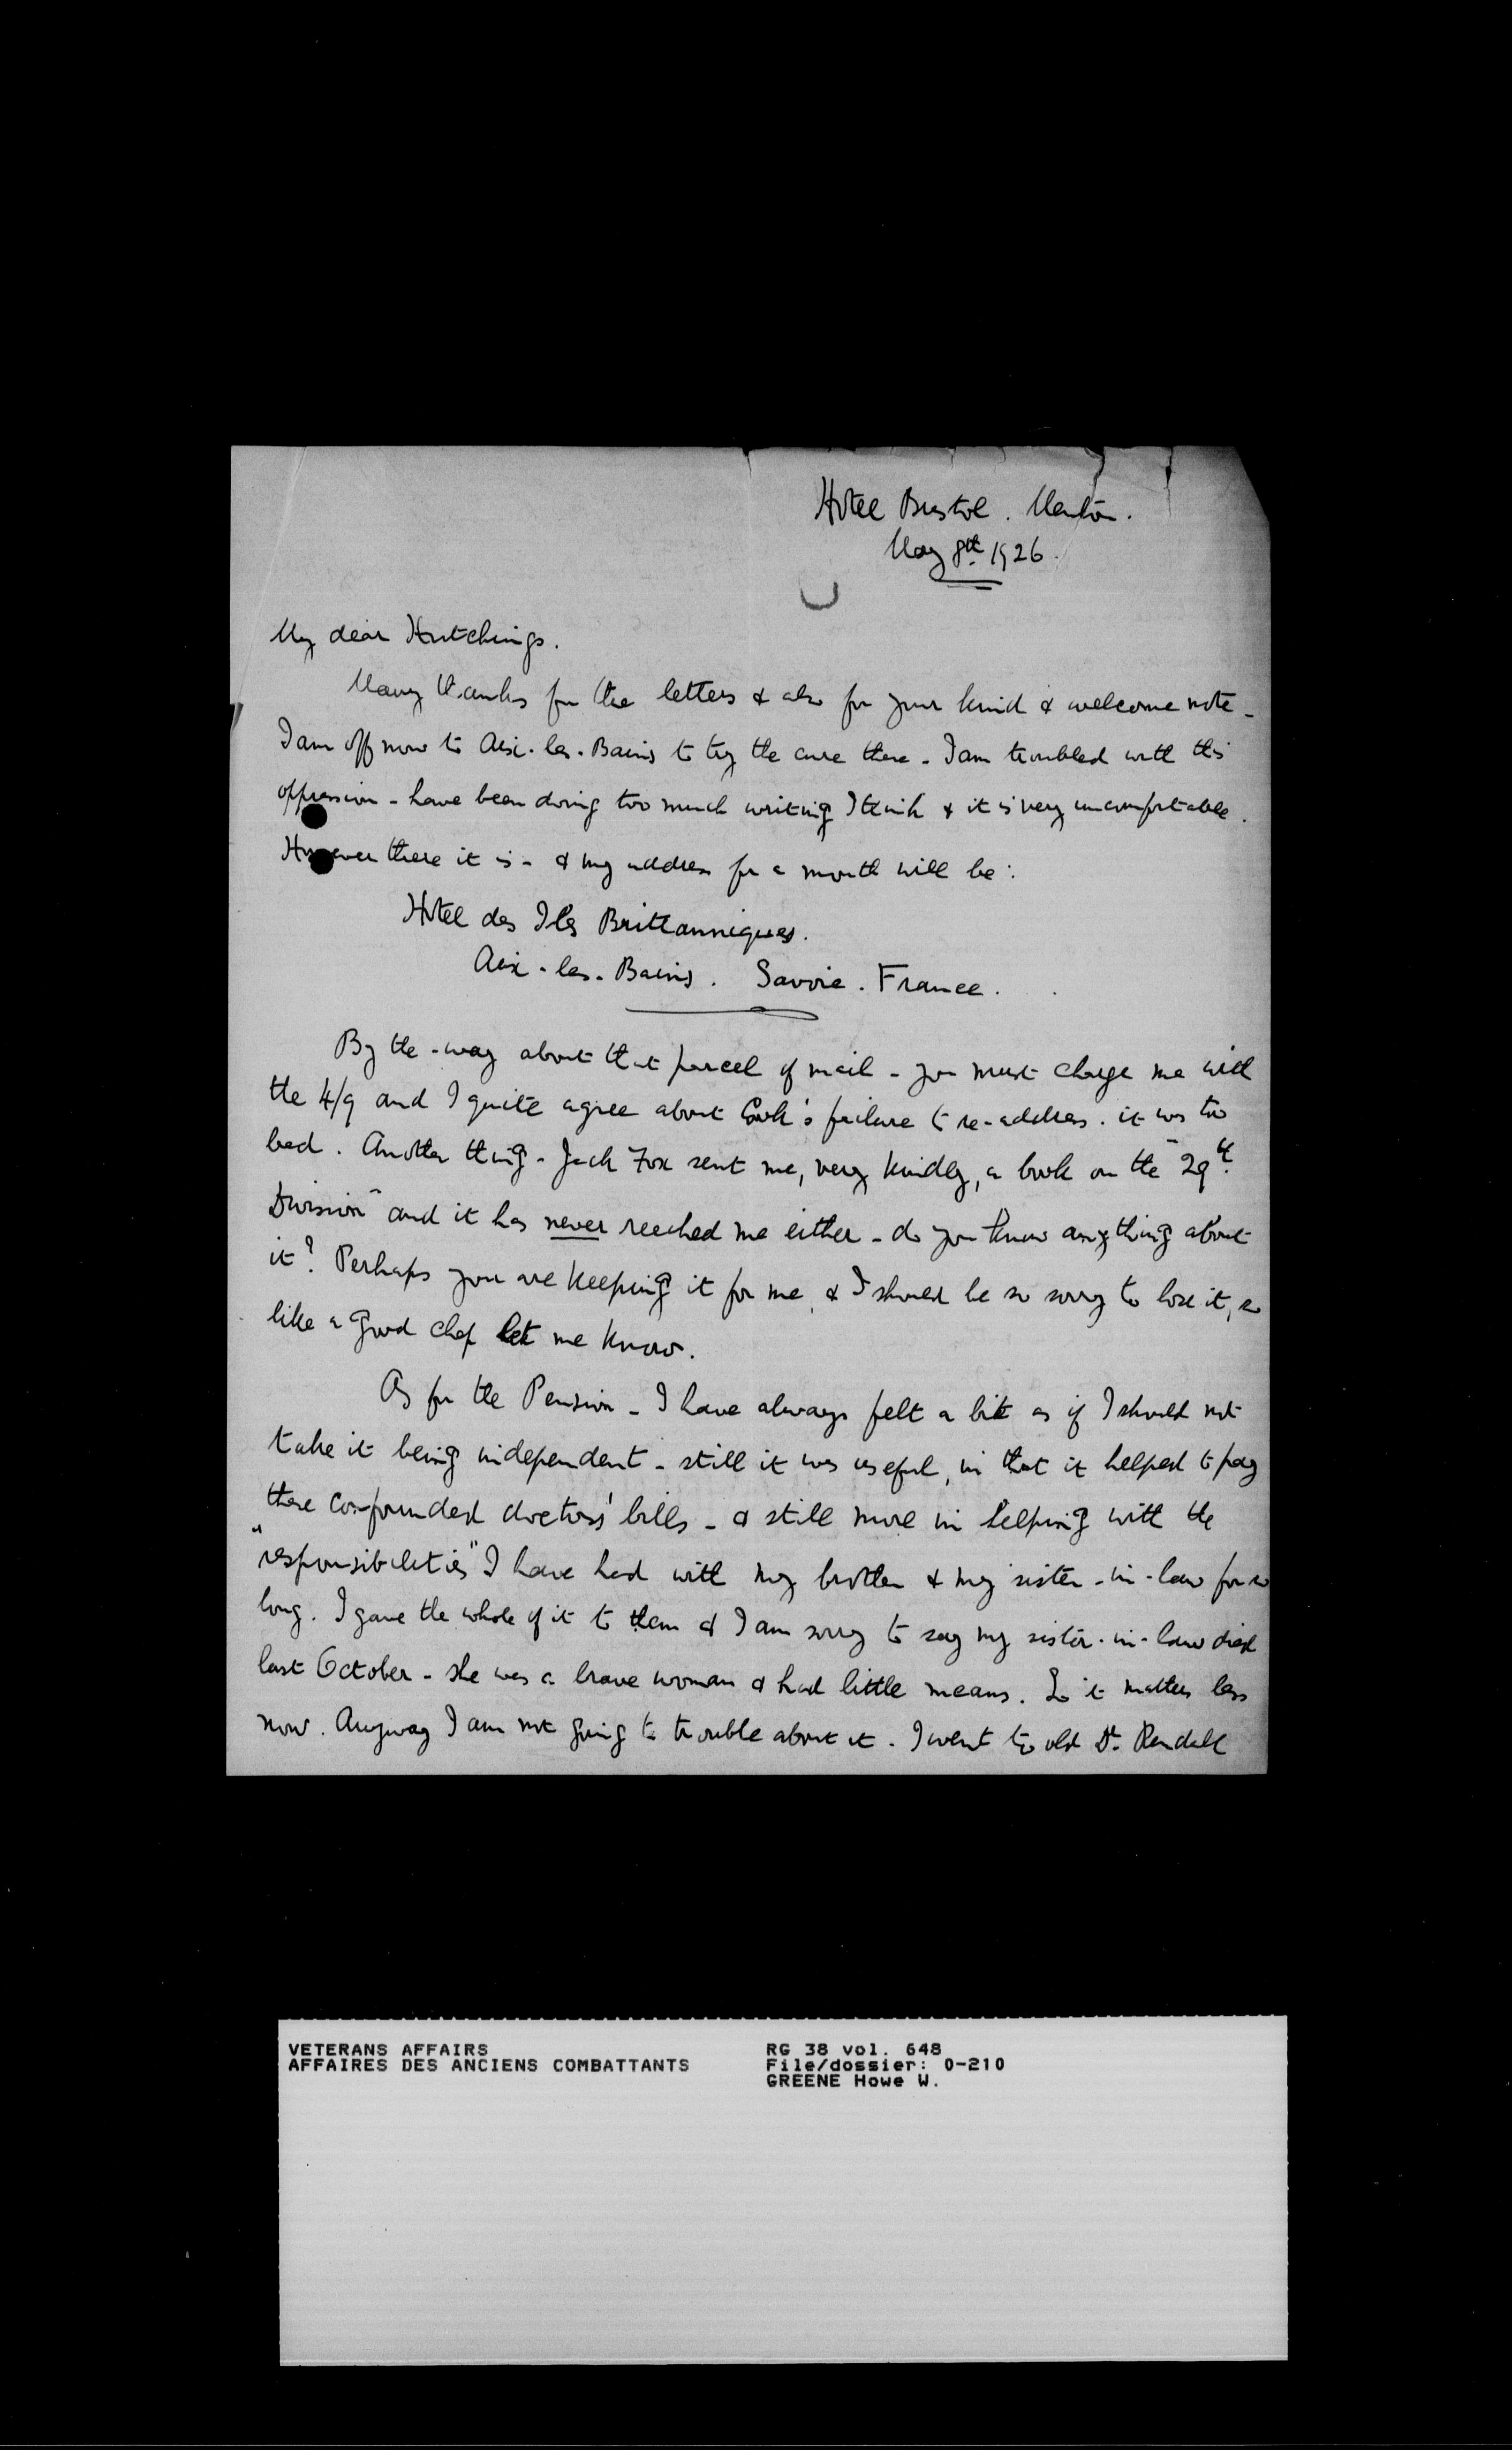 Hotel Bristol. Menton.
May 8th 1926.
My dear Hutchings.
Many thanks for the letters & also for your kind & welcome note -
I am off now to Aix-les-Bains to try the cure there - I am troubled with this
oppression - have been doing too much writing I think & it is very uncomfortable.
However there it is - & my address for a month will be:
Hotel des Iles Brittanniques.
Aix-les-Bains. Savoie. France.
By the-way about that parcel of mail - you must charge me with
the 4/9 and I quite agree about Cook's failure to re-address. it was too
bad. Another thing - Jack Fox sent me, very kindly, a book on the "29th
Division" and it has never reached me either - do you know anything about
it? Perhaps you are keeping it for me, & I should be so sorry to lose it, so
like a good chap let me know.
As for the Pension - I have always felt a bit as if I should not
take it being independent - still it was useful, in that it helped to pay
these confounded doctors' bills - & still more in helping with the
"responsibilities" I have had with my brother & my sister-in-law for so
long. I gave the whole of it to them & I am sorry to say my sister-in-law died
last October - she was a brave woman & had little means. So it matters less
now. Anyway I am not going to trouble about it. I went to old Dr. Rendall
VETERANS AFFAIRS
AFFAIRES DES ANCIENS COMBATTANTS
RG 38 vol. 648
File/dossier: 0-210
GREENE Howe W.